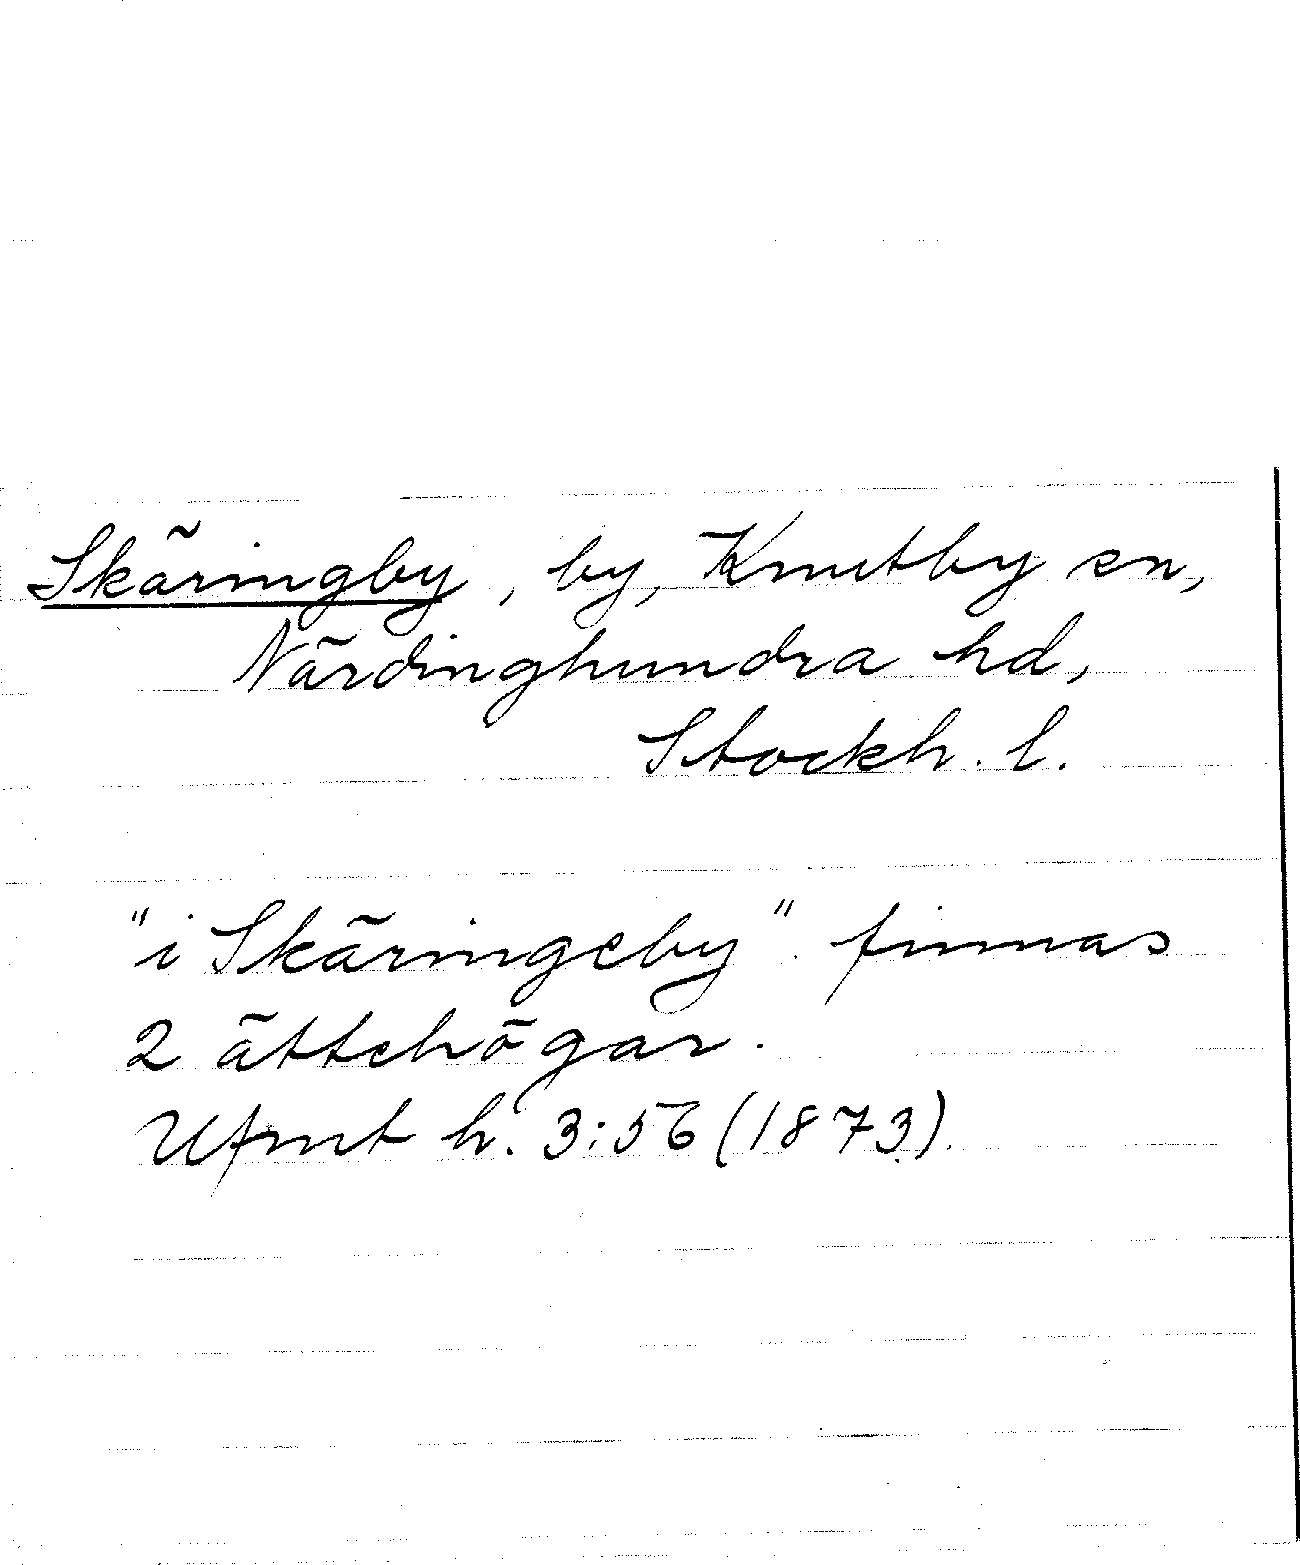 Skäringby, by, Knutby sn,
Närdinghundra hd,
Stockh. l.
"i Skäringeby" finnas
2 ättehögar.
Ufmt h. 3:56 (1873).